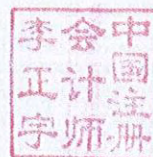 中国注册
会计师
李正宇